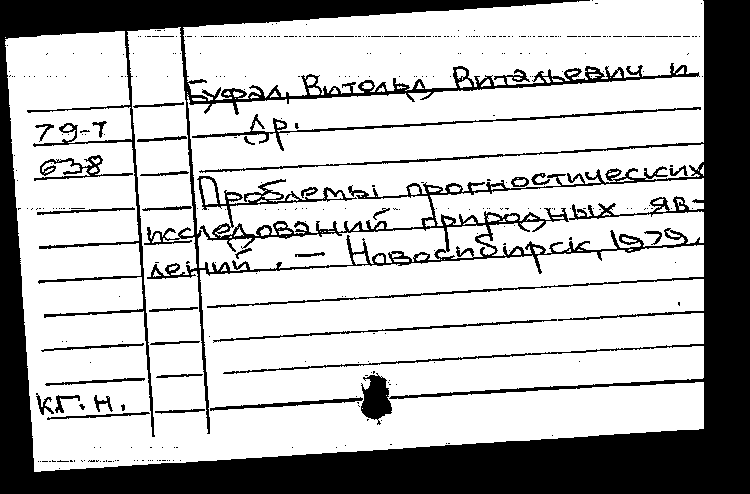 Буфал, Витольд Витальевич и
др.
79-7
638
Проблемы прогностических
исследований природных яв-
лений. — Новосибирск, 1979.
кг.н.